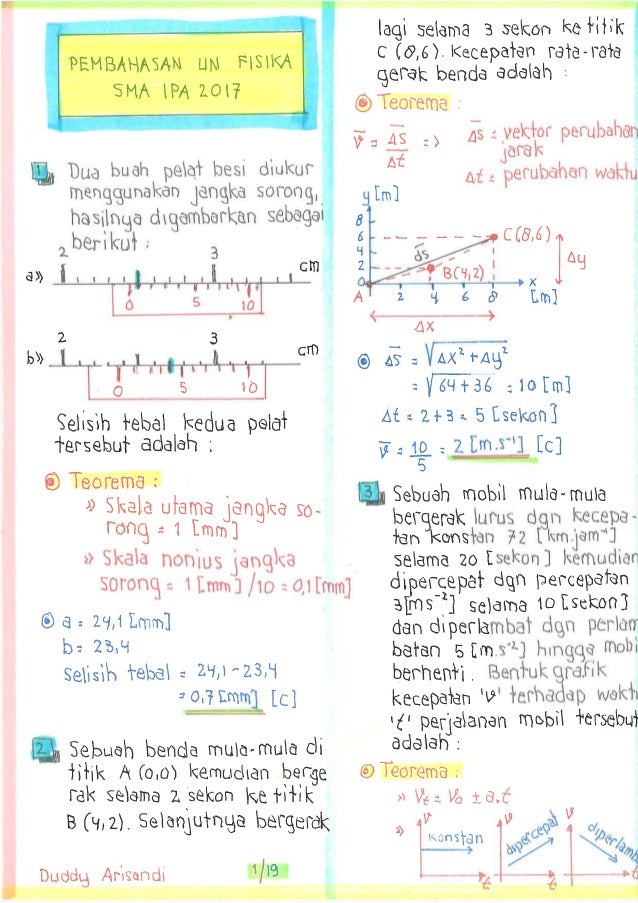 PEMBAHASAN UN FISIKA
SMA IPA 2017
1 Dua buah pelat besi diukur
menggunakan jangka sorong,
hasilnya digambarkan sebagai
berikut :
2 3
a» cm
0 5 10
2 3
b» cm
0 5 10
Selisih tebal kedua pelat
tersebut adalah :
Teorema :
» Skala utama jangka so-
rong = 1 [mm]
» Skala nonius jangka
sorong = 1 [mm] /10 = 0,1 [mm]
a = 24,1 [mm]
b = 23,4
Selisih tebal = 24,1 - 23,4
= 0,7 [mm] [C]
2 Sebuah benda mula-mula di
titik A (0,0) kemudian berge
rak selama 2 sekon ke titik
B (4,2). Selanjutnya bergerak
Duddy Arisandi 1/19
lagi selama 3 sekon ke titik
C (8,6). Kecepatan rata-rata
gerak benda adalah :
Teorema :
v̅ = Δs̅/Δt => Δs̅ = vektor perubahan
jarak
Δt = perubahan waktu
y [m]
8
6 C (8,6)
4 ds̅ Δy
2 B(4,2)
0 x
A 2 4 6 8 [m]
Δx
Δs̅ = √Δx² + Δy²
= √64 + 36 = 10 [m]
Δt = 2 + 3 = 5 [sekon]
v̅ = 10/5 = 2 [m.s⁻¹] [C]
3 Sebuah mobil mula-mula
bergerak lurus dgn kecepa-
tan konstan 72 [km.jam⁻¹]
selama 20 [sekon] kemudian
dipercepat dgn percepatan
3[ms⁻²] selama 10 [sekon]
dan diperlambat dgn perlam
batan 5 [m.s⁻²] hingga mobi
berhenti. Bentuk grafik
kecepatan 'v' terhadap wakt
't' perjalanan mobil tersebut
adalah :
Teorema :
» Vt = Vo ± a.t
» v konstan t v dipercepat t v diperlamb t